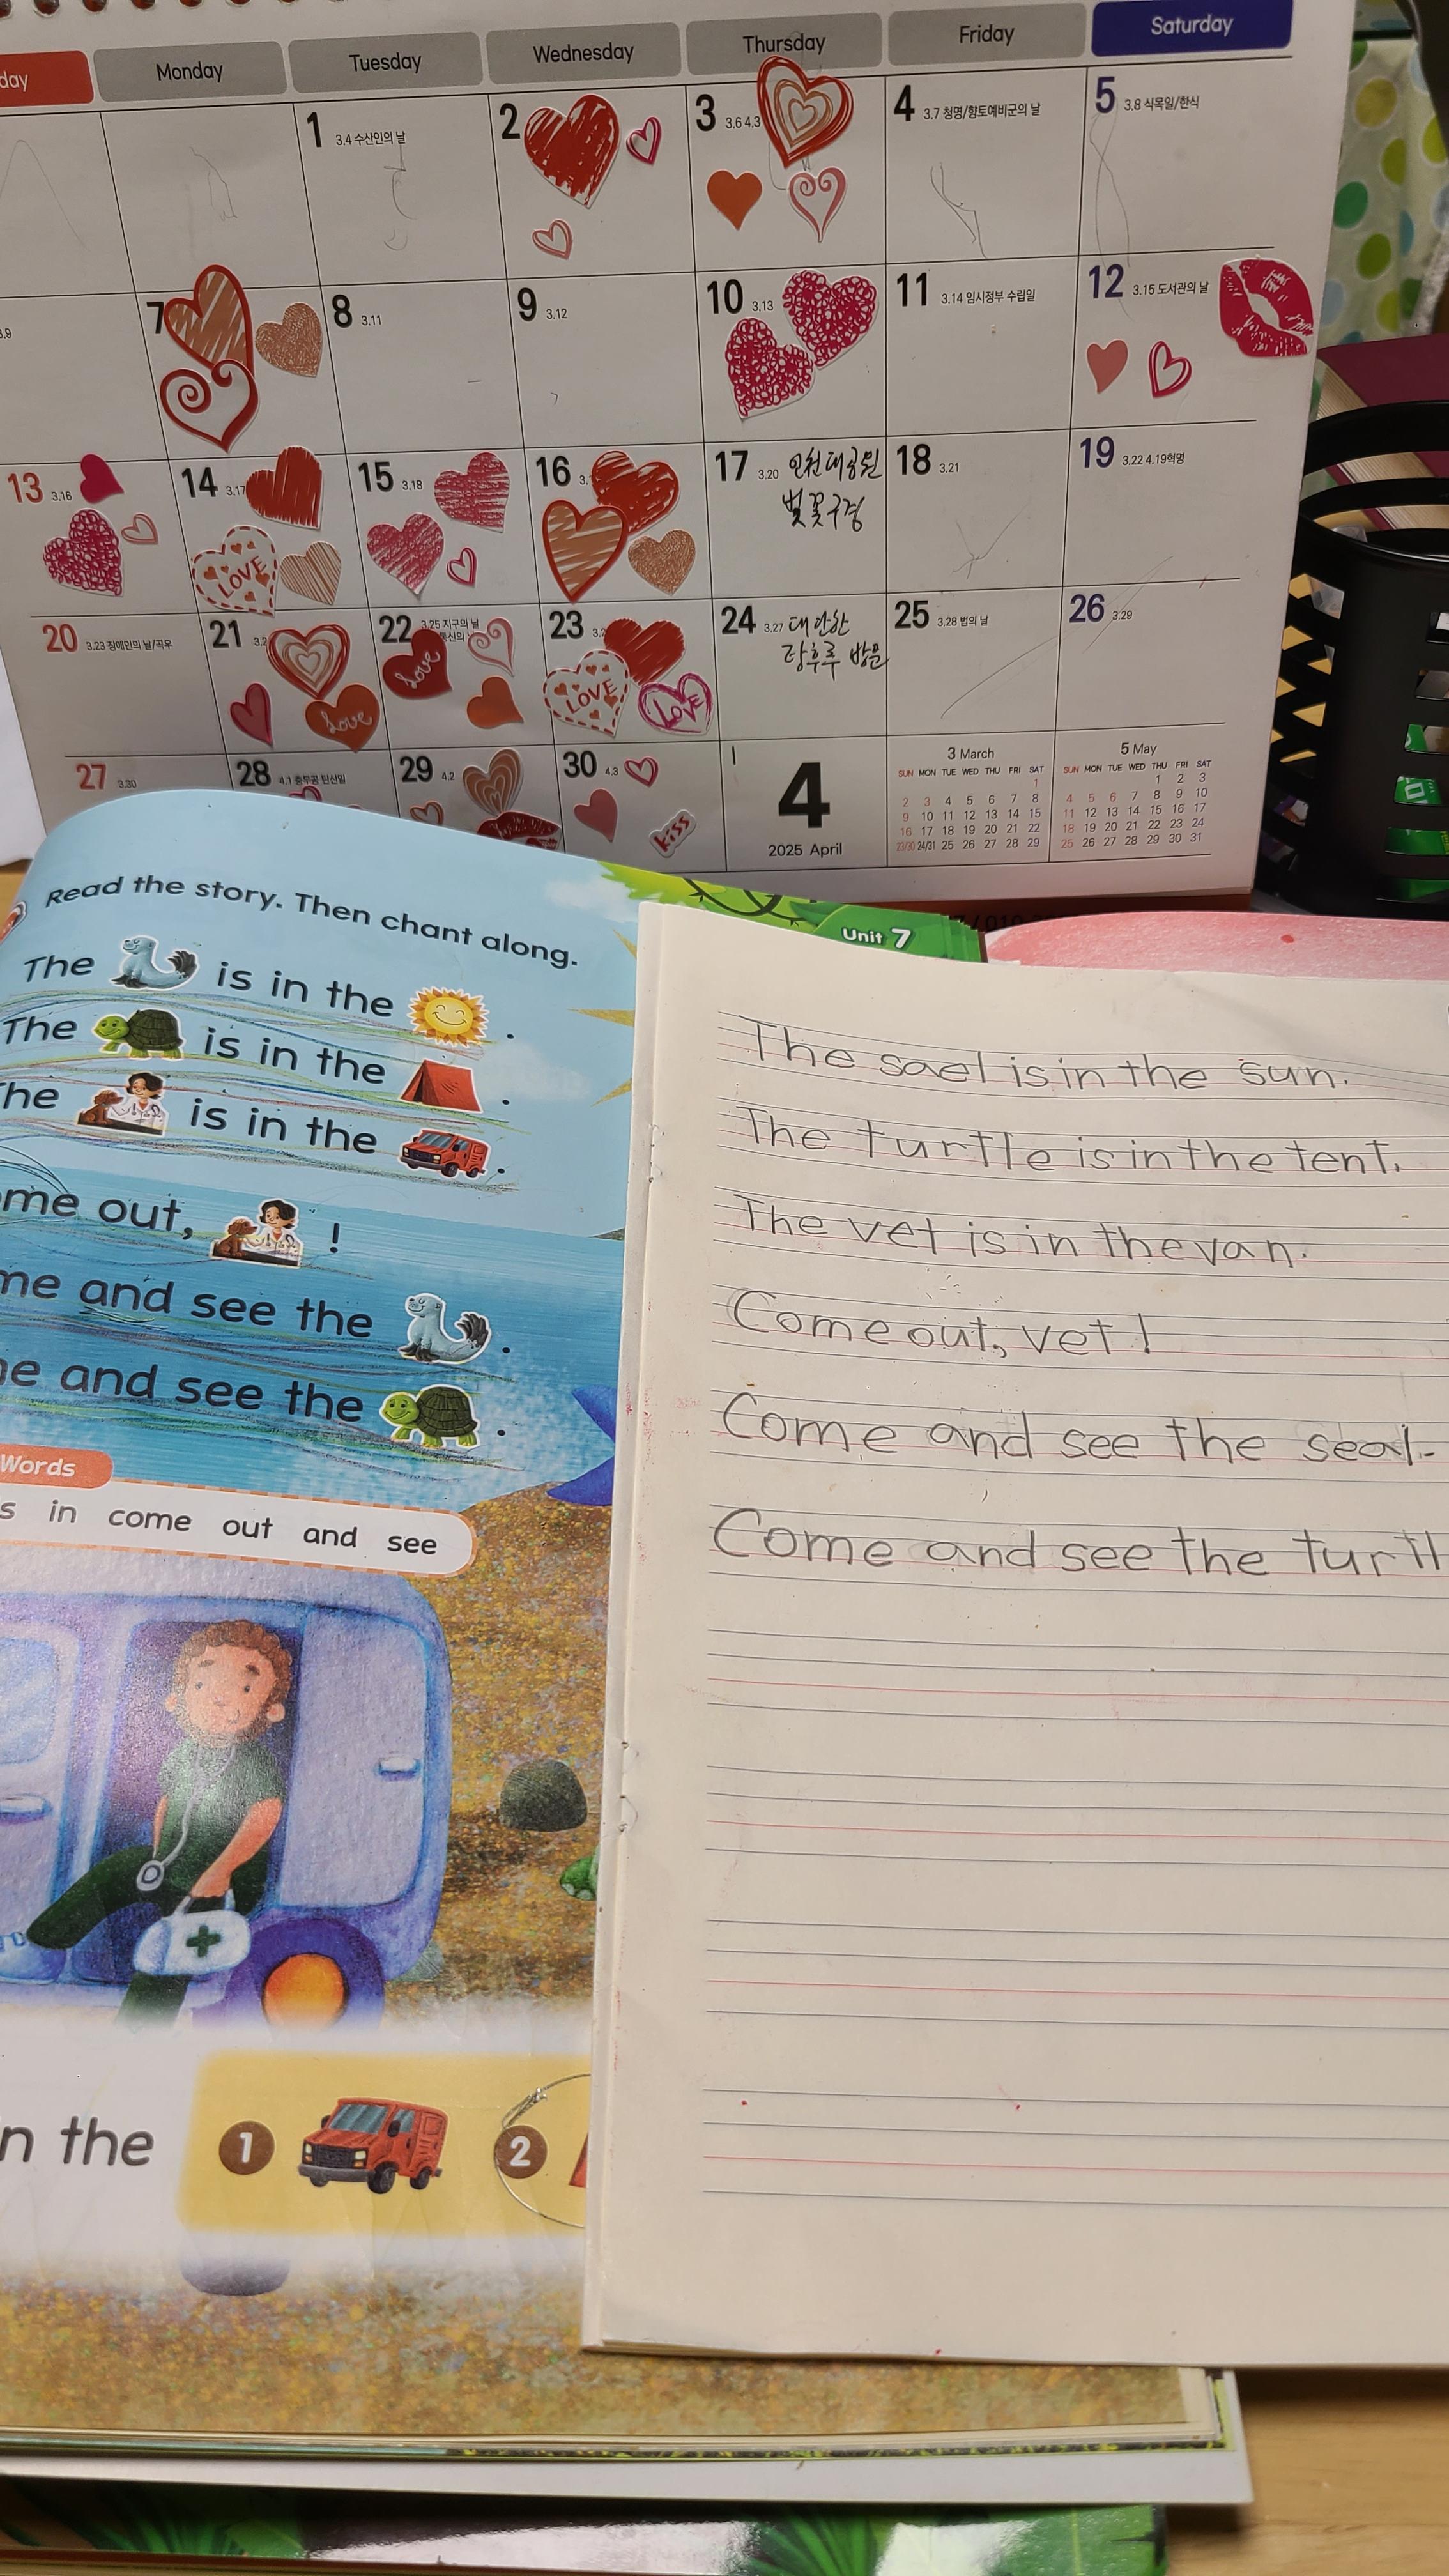 day Monday Tuesday Wednesday Thursday Friday Saturday
1 3.4 수산인의 날
2
3 3.6 4.3
4 3.7 청명/향토예비군의 날
5 3.8 식목일/한식
3.9
7
8 3.11
9 3.12
10 3.13
11 3.14 임시정부 수립일
12 3.15 도서관의 날
13 3.16
14 3.17
LOVE
15 3.18
16 3.
17 3.20 인천대공원
벚꽃구경
18 3.21
19 3.22 4.19혁명
20 3.23 장애인의 날/곡우
21 3.2
Love
22 3.25 지구의 날
통신의
Love
23 3.2
LOVE LOVE
24 3.27 대단한
탕후루 방문
25 3.28 법의 날
26 3.29
27 3.30
28 4.1 충무공 탄신일
29 4.2
30 4.3
kiss
4
2025 April
3 March
SUN MON TUE WED THU FRI SAT
1
2 3 4 5 6 7 8
9 10 11 12 13 14 15
16 17 18 19 20 21 22
23/30 24/31 25 26 27 28 29
5 May
SUN MON TUE WED THU FRI SAT
1 2 3
4 5 6 7 8 9 10
11 12 13 14 15 16 17
18 19 20 21 22 23 24
25 26 27 28 29 30 31
Unit 7
Read the story. Then chant along.
The is in the .
The is in the .
he is in the .
me out, !
me and see the .
e and see the .
Words
s in come out and see
n the 1 2
The sael is in the sun.
The turtle is in the tent.
The vet is in the van.
Come out, vet!
Come and see the seal.
Come and see the turtl